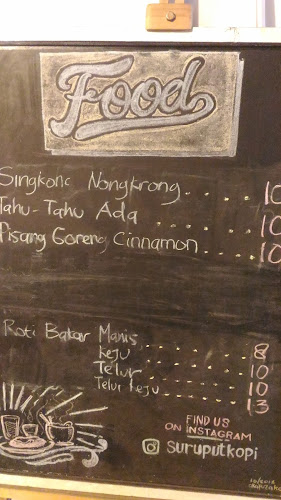 Food
Singkong Nongkrong..... 10
Tahu-Tahu Ada ...... 10
Pisang Goreng Cinnamon.... 10
Roti Bakar Manis ...... 8
Keju ...... 10
Telur ...... 10
Telur Keju ..... 13
FIND US
ON INSTAGRAM
suruputkopi